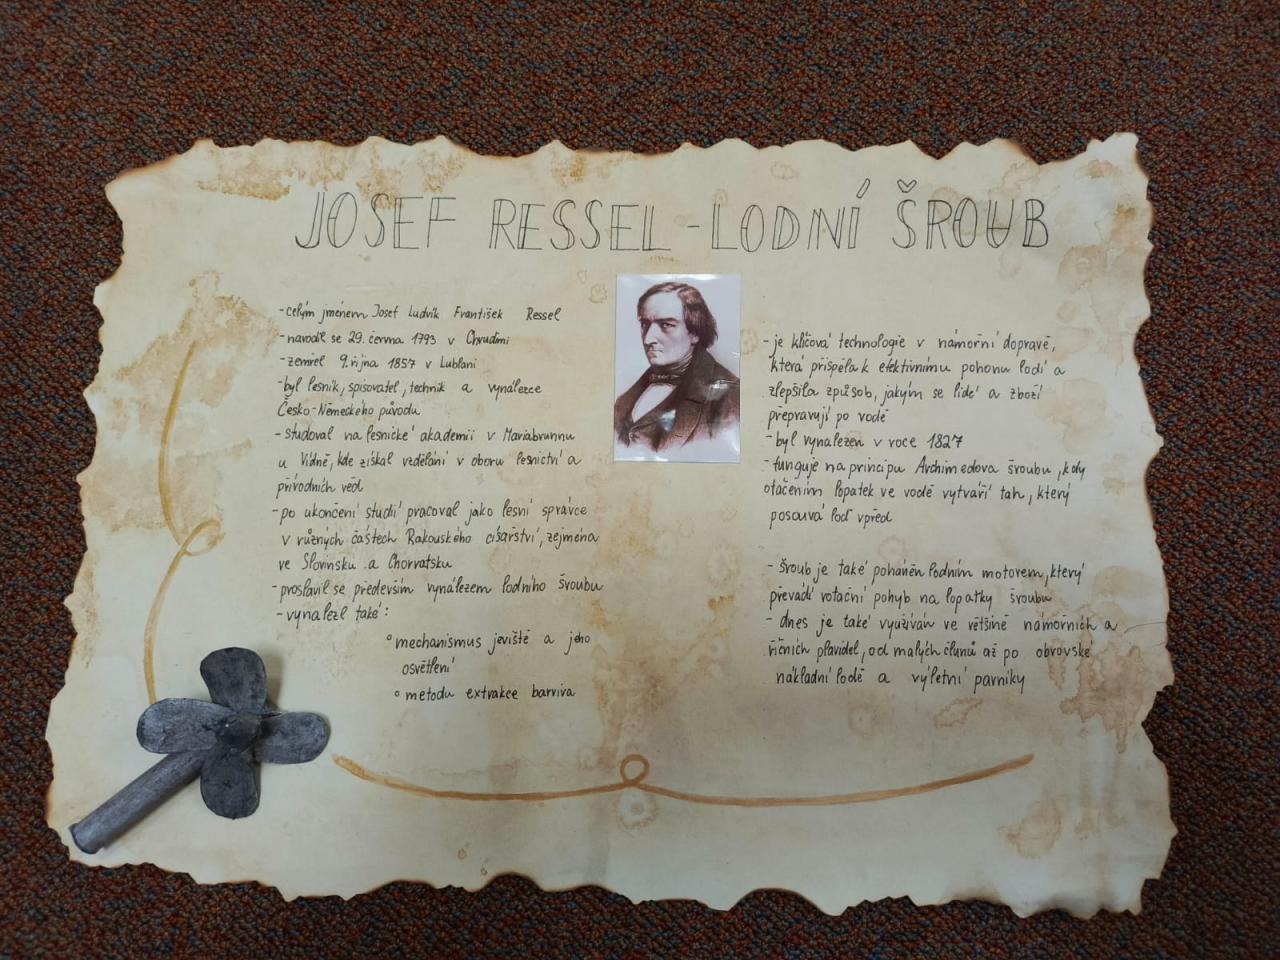 JOSEF RESSEL - LODNÍ ŠROUB
- celým jménem Josef Ludvík František Ressel
- narodil se 29. června 1793 v Chrudimi
- zemřel 9. října 1857 v Lublani
- byl lesník, spisovatel, technik a vynálezce
Česko-Německého původu
- studoval na lesnické akademii v Mariabrunnu
u Vídně, kde získal vzdělání v oboru lesnictví a
přírodních věd
- po ukončení studií pracoval jako lesní správce
v různých částech Rakouského císařství, zejména
ve Slovinsku a Chorvatsku
- proslavil se především vynálezem lodního šroubu
- vynalezl také:
° mechanismus jeviště a jeho
osvětlení
° metodu extrakce barviva
- je klíčová technologie v námořní dopravě,
která přispěla k efektivnímu pohonu lodí a
zlepšila způsob, jakým se lidé a zboží
přepravují po vodě
- byl vynalezen v roce 1827
- funguje na principu Archimedova šroubu, kdy
otáčením lopatek ve vodě vytváří tah, který
posouvá loď vpřed
- šroub je také poháněn lodním motorem, který
převádí rotační pohyb na lopatky šroubu
- dnes je také využíván ve většině námořních a
říčních plavidel, od malých člunů až po obrovské
nákladní lodě a výletní parníky